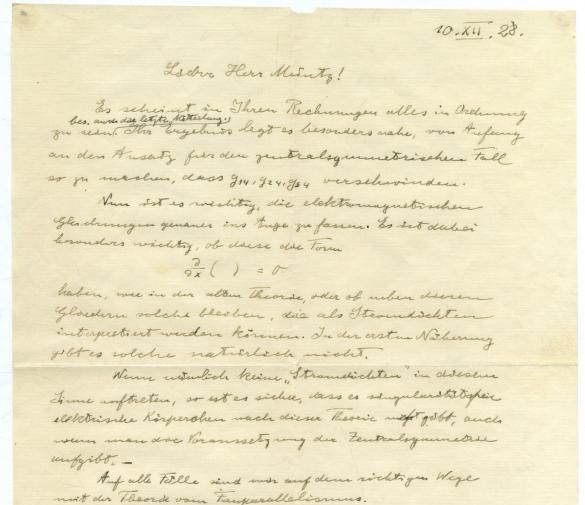 10. XII. 28.
Lieber Herr Müntz!
Es scheint in Ihren Rechnungen alles in Ordnung
bes. auch die letzte Mitteilung.
zu sein. Ihr Ergebnis legt es besonders nahe, von Anfang
an den Ansatz für den zentralsymmetrischen Fall
so zu machen, dass g14, g24, g34 verschwinden.
Nun ist es wichtig, die elektromagnetischen
Gleichungen genauer ins Auge zu fassen. Es ist dabei
besonders wichtig, ob diese die Form
∂/∂x ( ) = 0
haben, wie in der alten Theorie, oder ob neben diesen
Gliedern solche bleiben, die als Stromdichten
interpretiert werden können. In der ersten Näherung
gibt es solche natürlich nicht.
Wenn nämlich keine „Stromdichten" in diesem
Sinne auftreten, so ist es sicher, dass es singularitätsfreie
elektrische Körperchen nach dieser Theorie gibt, auch
wenn man die Voraussetzung der Zentralsymmetrie
aufgibt. —
Auf alle Fälle sind wir auf dem richtigen Wege
mit der Theorie vom Fernparallelismus.